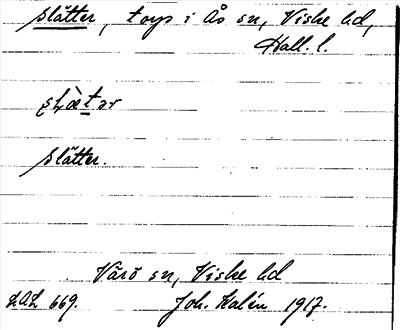 slätter, torp i Ås sn, Viske hd,
Hall. l.
slätter.
Värö sn, Viske hd
LAL 669. Joh. Kalén 1917.